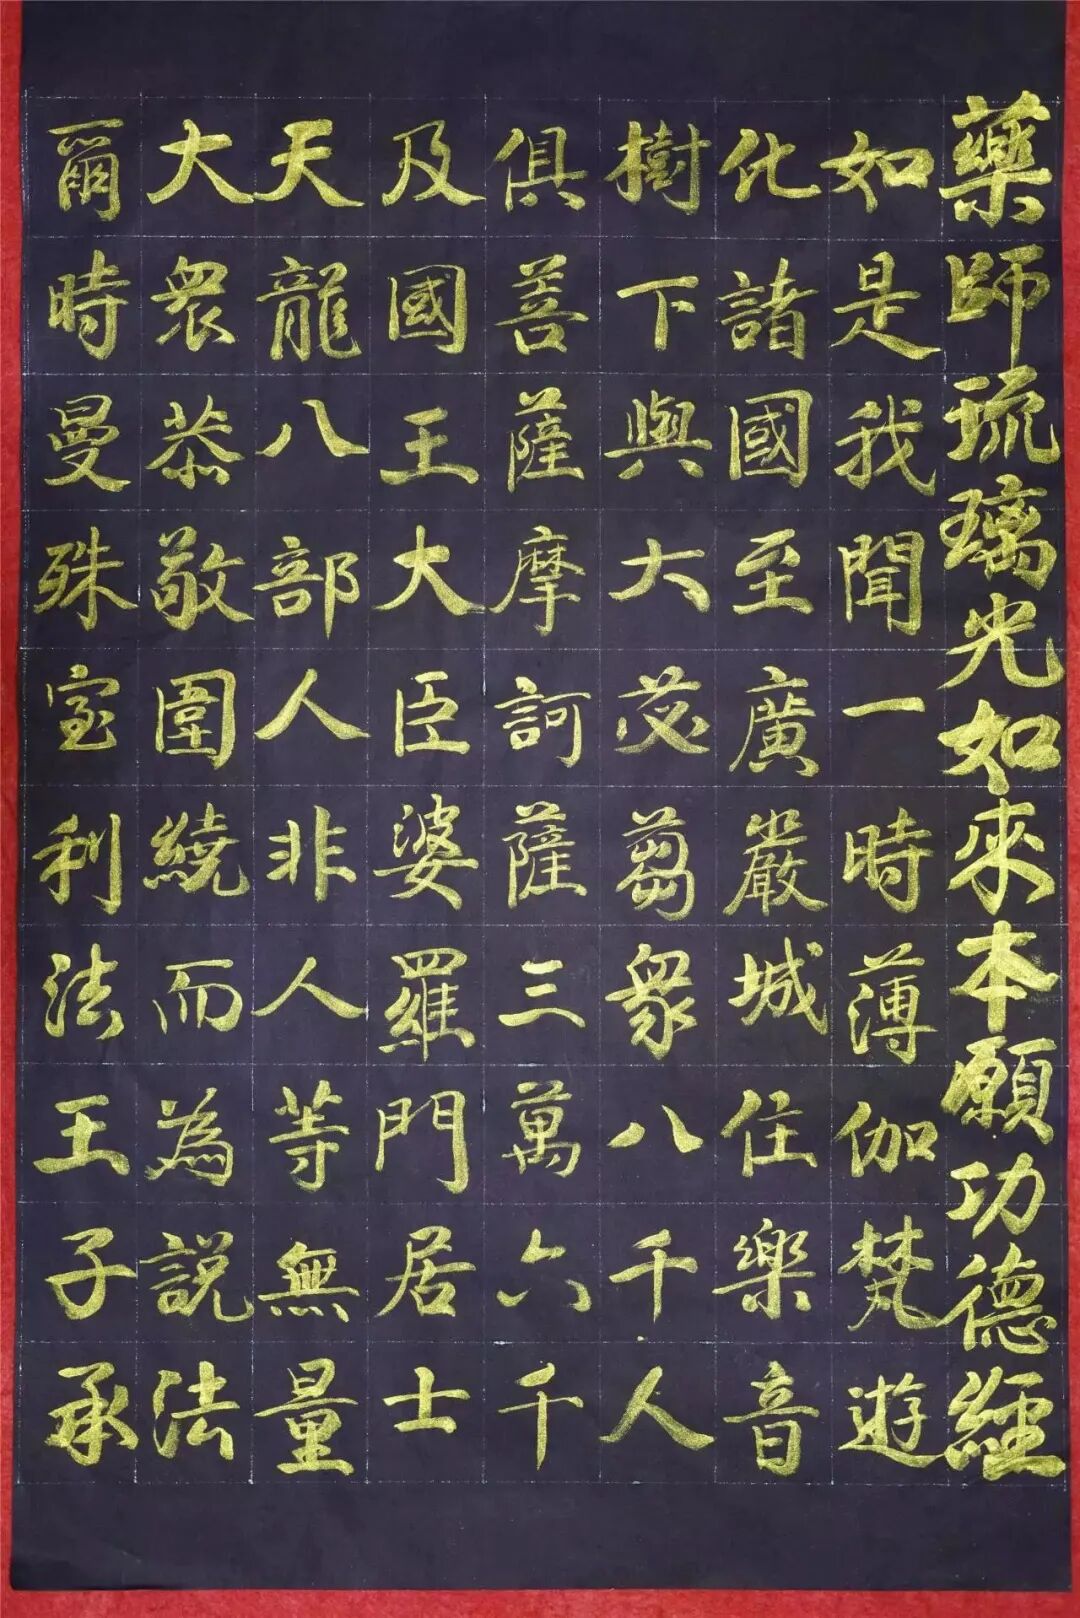 藥師琉璃光如來本願功德經
如是我聞一時薄伽梵遊
化諸國至廣嚴城住樂音
樹下與大苾芻眾八千人
俱菩薩摩訶薩三萬六千
及國王大臣婆羅門居士
天龍八部人非人等無量
大眾恭敬圍繞而為說法
爾時曼殊室利法王子承